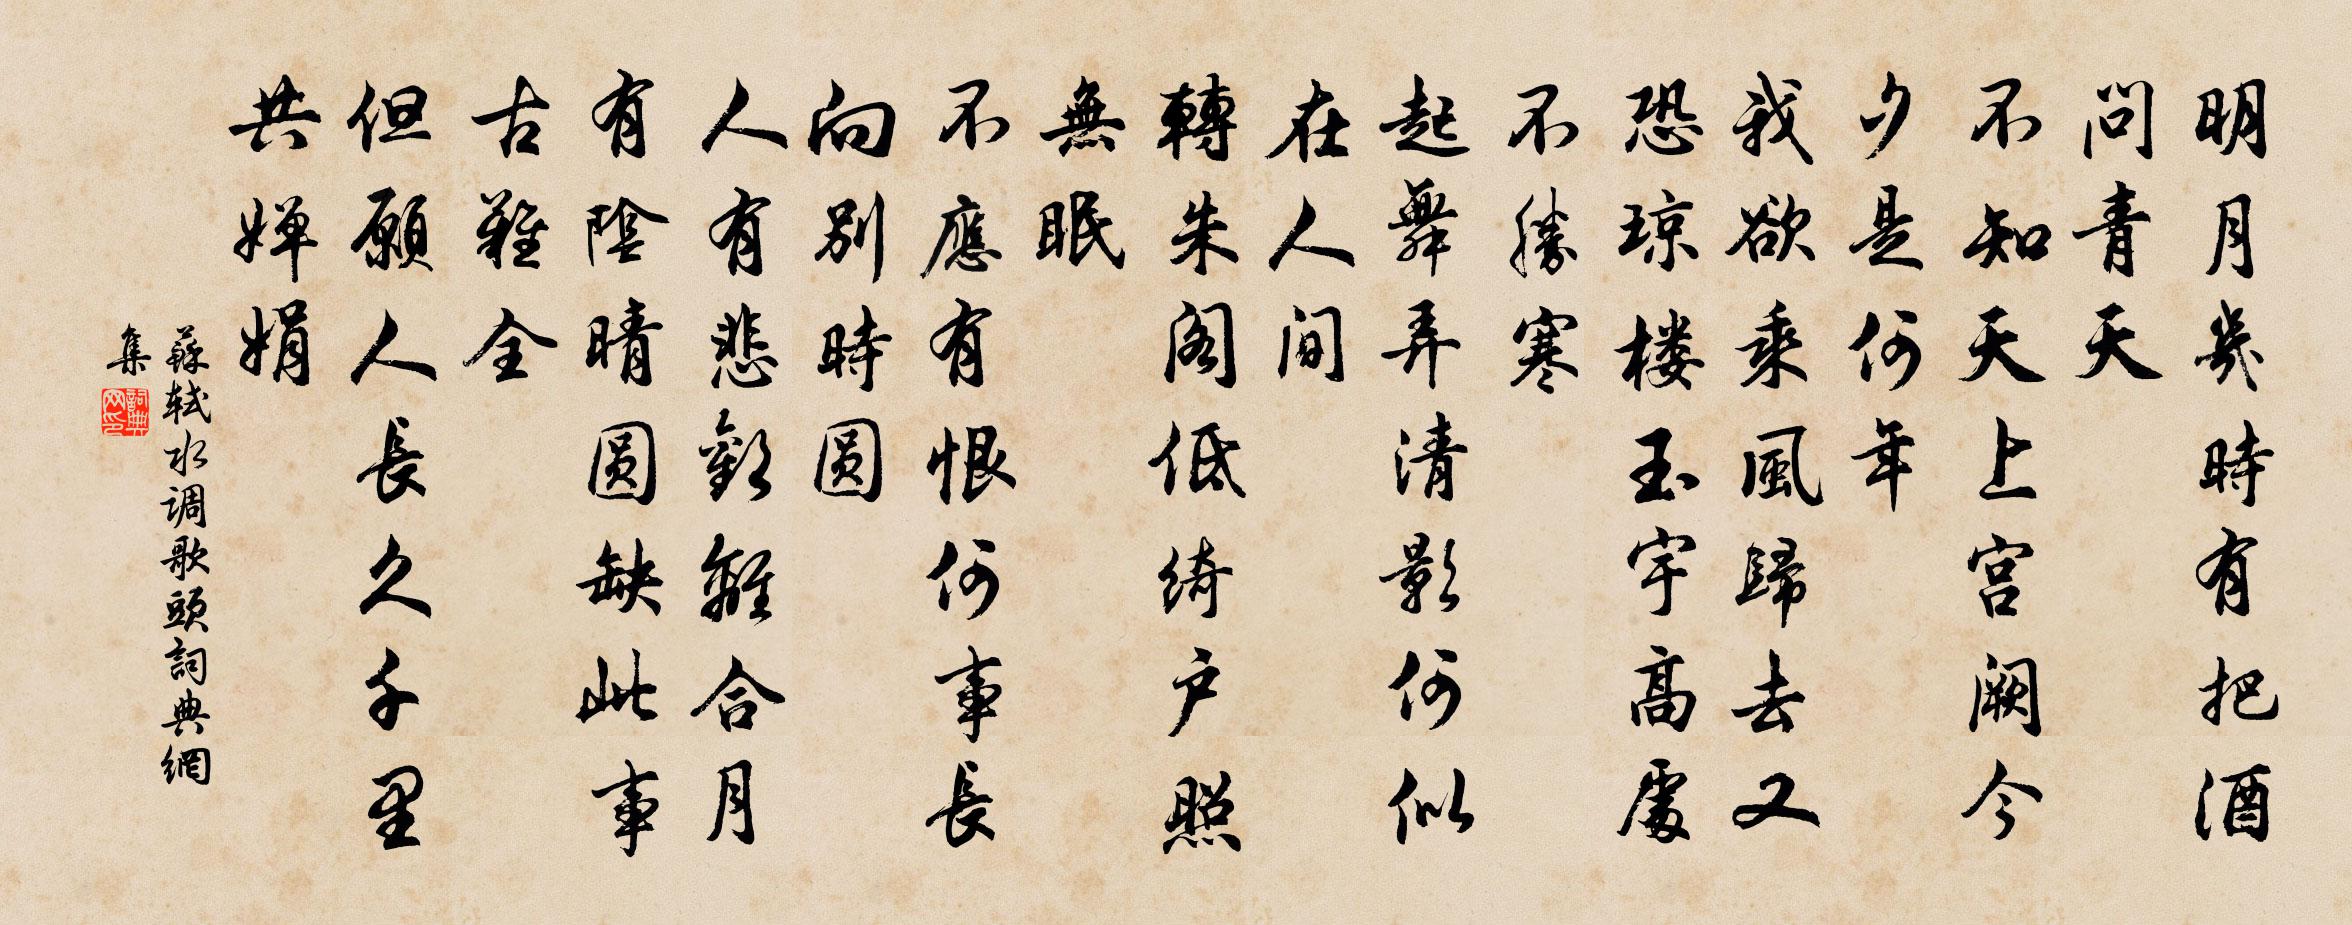 明月幾時有把酒
問青天
不知天上宫闕今
夕是何年
我欲乘風歸去又
恐琼楼玉宇高處
不勝寒
起舞弄清影何似
在人间
轉朱阁低绮户照
無眠
不應有恨何事長
向别時圆
人有悲歡離合月
有陰晴圆缺此事
古難全
但願人長久千里
共婵娟
蘇轼水调歌頭詞典網
集
詞典
网印